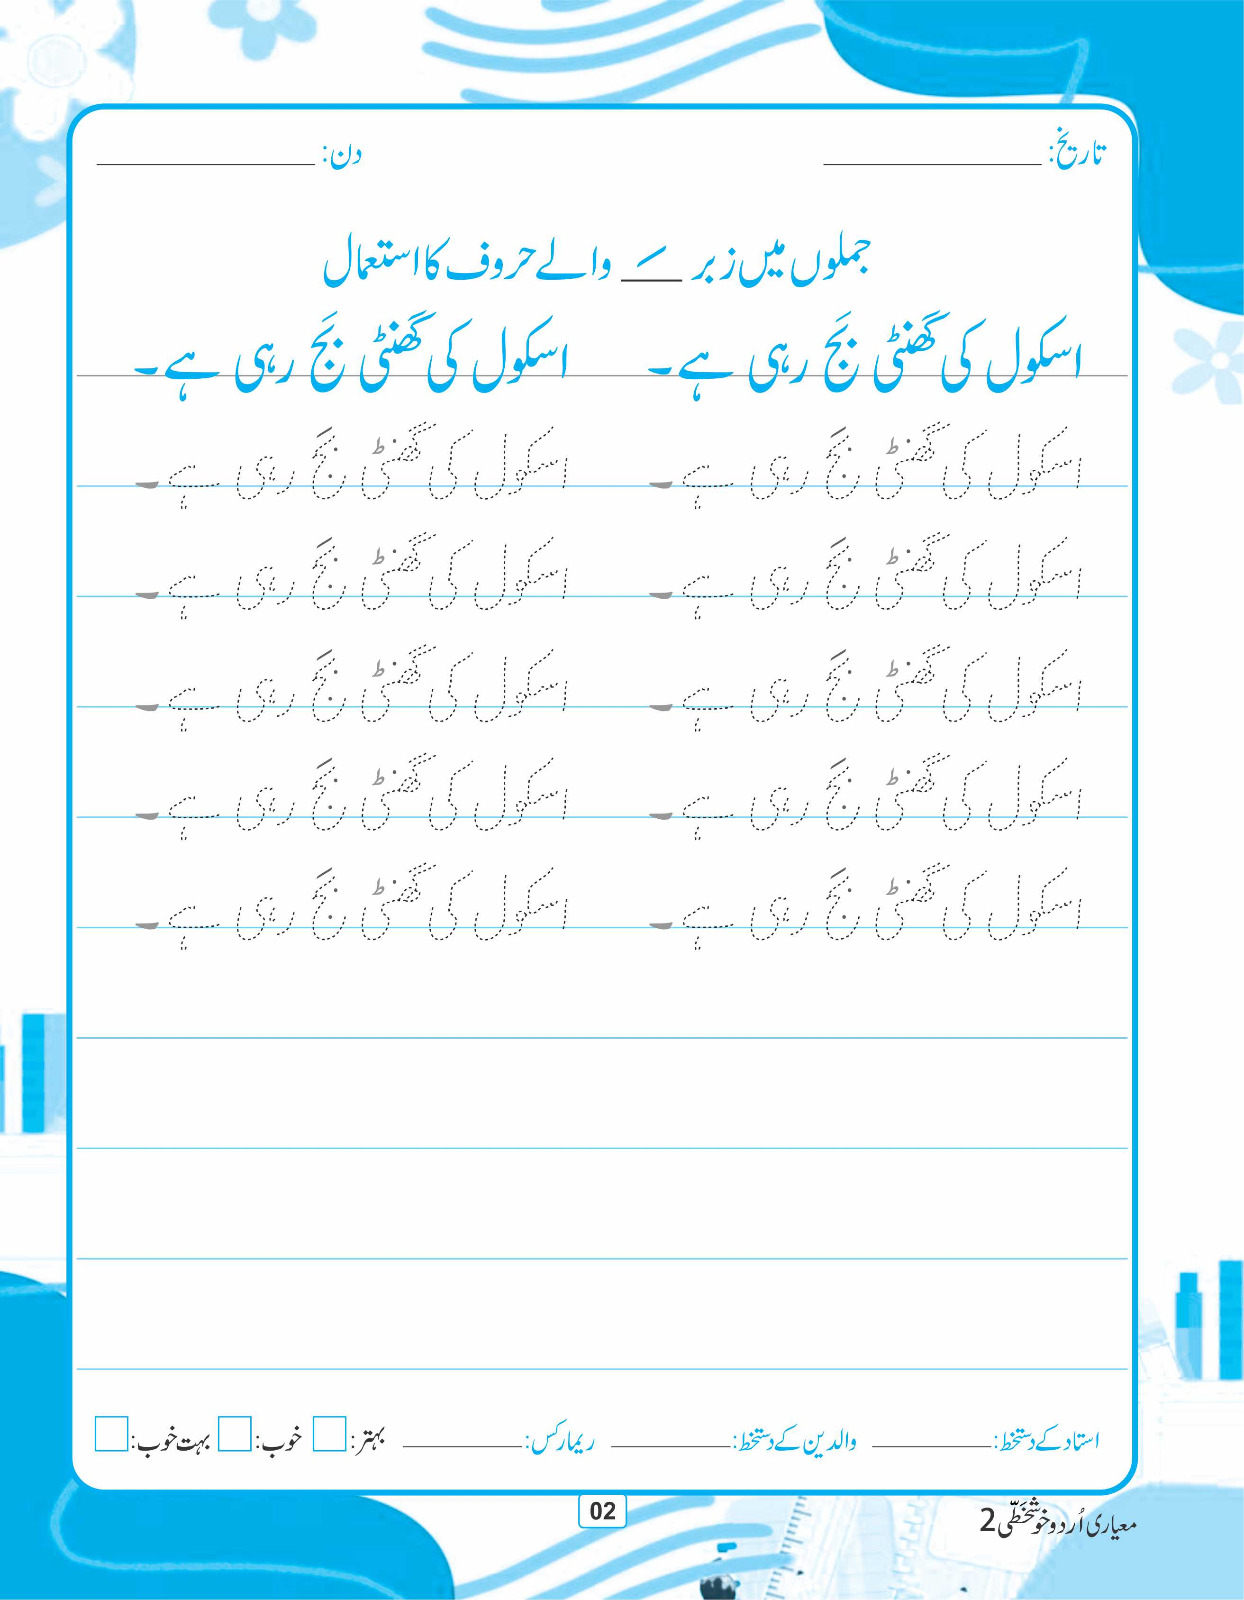 تاریخ: ____________ دن: ____________
جملوں میں زبر ـَ والے حروف کا استعمال
اسکول کی گھنٹی بَج رہی ہے۔ اسکول کی گھنٹی بَج رہی ہے۔
اسکول کی گھنٹی بَج رہی ہے۔ اسکول کی گھنٹی بَج رہی ہے۔
اسکول کی گھنٹی بَج رہی ہے۔ اسکول کی گھنٹی بَج رہی ہے۔
اسکول کی گھنٹی بَج رہی ہے۔ اسکول کی گھنٹی بَج رہی ہے۔
اسکول کی گھنٹی بَج رہی ہے۔ اسکول کی گھنٹی بَج رہی ہے۔
اسکول کی گھنٹی بَج رہی ہے۔ اسکول کی گھنٹی بَج رہی ہے۔
استاد کے دستخط: ________ والدین کے دستخط: ________ ریمارکس: ________ بہتر: خوب: بہت خوب:
معیاری اُردو خوشخَطّی 2
02